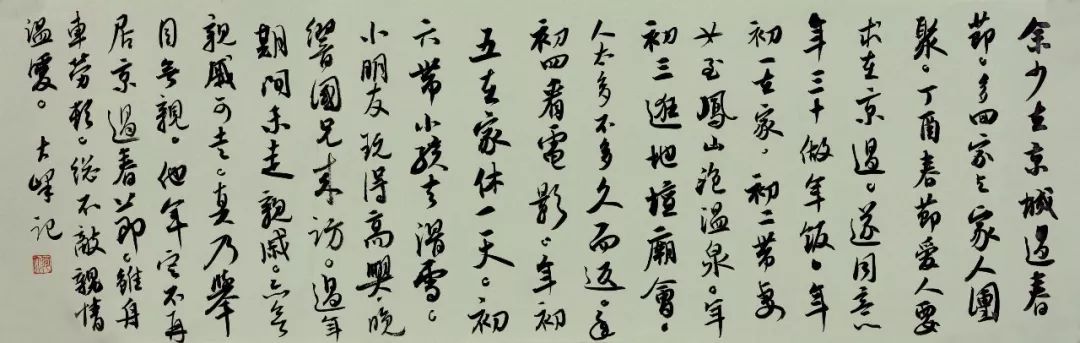 余少在京城過春
節。多回家与家人團
聚。丁酉春節愛人要
求在京過。遂同意。
年三十做年飯。年
初一在家。初二带妻
女至鳳山泡溫泉。年
初三逛地壇廟會。
人太多不多久而返。
初四看電影。年初
五在家休一天。初
六带小孩去滑雪。
小朋友玩得高興。晚
國兄来訪。過年
期間未走親戚。亦無
親戚可走。真乃舉
目無親。他年定不再
居京過春節。雖舟
車勞頓。總不敵親情
溫暖。大峰记